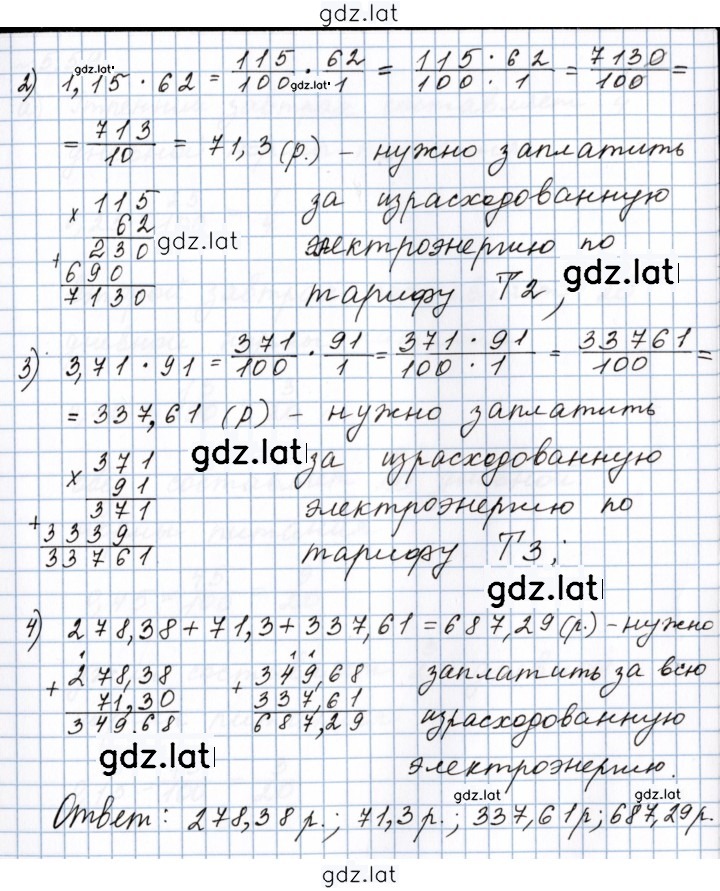 gdz.lat
2) 1,15 · 62 = 115/100 · 62/1 = 115 · 62/100 · 1 = 7130/100 =
gdz.lat
gdz.lat
= 713/10 = 71,3 (р.) – нужно заплатить
× 115 за израсходованную
62
230 gdz.lat электроэнергию по
+ 690 gdz.lat
7130 тарифу Т2,
3) 3,71 · 91 = 371/100 · 91/1 = 371 · 91/100 · 1 = 33761/100 =
= 337,61 (р) – нужно заплатить
gdz.lat
× 371 за израсходованную
91
371 электроэнергию по
+ 3339
33761 тарифу Т3;
gdz.lat
4) 278,38 + 71,3 + 337,61 = 687,29 (р.) – нужно
+ 278,38 + 349,68 заплатить за всю
71,30 337,61
349,68 687,29 израсходованную
gdz.lat
электроэнергию.
gdz.lat gdz.lat
Ответ: 278,38 р.; 71,3 р.; 337,61 р; 687,29 р.
gdz.lat